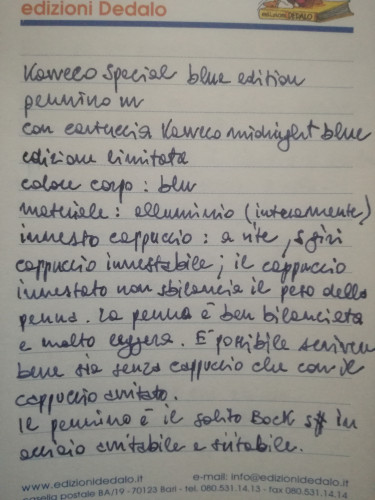 edizioni Dedalo
EDIZIONI DEDALO
Kaweco Special blue edition
pennino m
con cartuccia Kaweco midnight blue
edizione limitata
colore corpo : blu
materiale : alluminio (interamente)
innesto cappuccio : a vite, 5 giri
cappuccio innestabile ; il cappuccio
innestato non sbilancia il peso della
penna. La penna è ben bilanciata
e molto leggera. È possibile scrivere
bene sia senza cappuccio che con il
cappuccio avvitato.
Il pennino è il solito Bock in
acciaio avvitabile e svitabile.
www.edizionidedalo.it e-mail: info@edizionidedalo.it
casella postale BA/19 - 70123 Bari - tel. 080.531.14.13 - fax 080.531.14.14